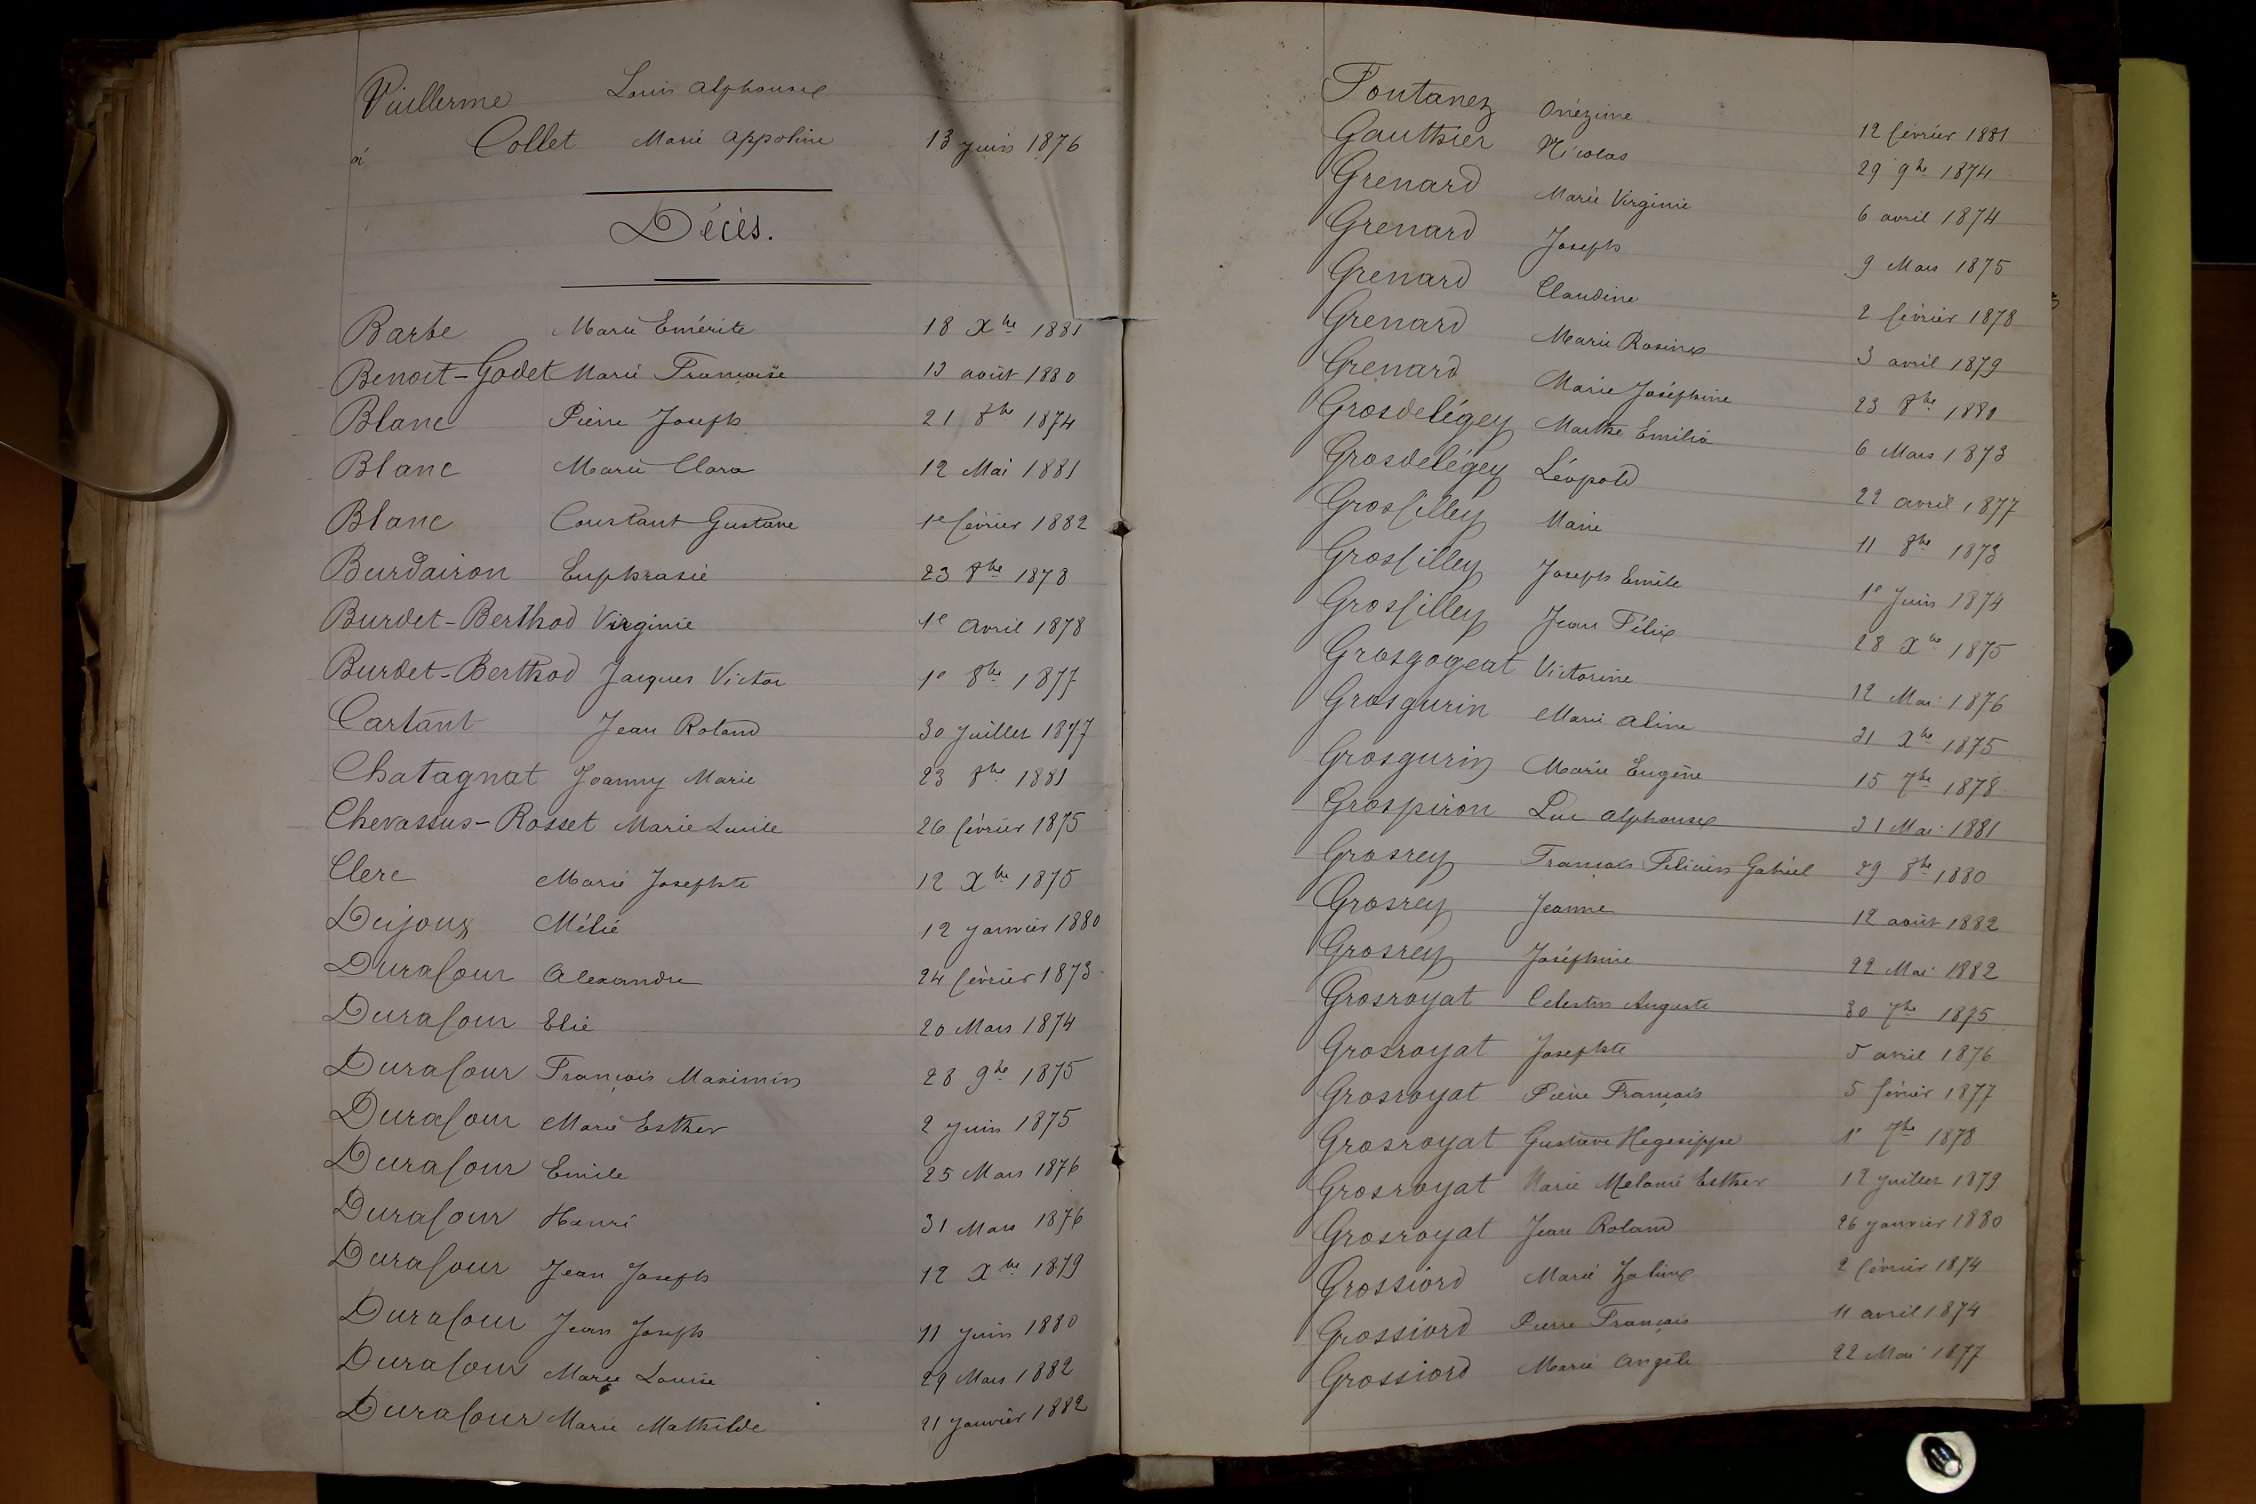 Vuillerme Louis Alphonse
à Collet Marie Appoline 13 juin 1876
Décès.
Barbe Marie Emérite 18 Xbre 1881
Benoit-Godet Marie Françoise 13 août 1880
Blanc Pierre Joseph 21 8bre 1874
Blanc Marie Clara 12 Mai 1881
Blanc Constant Gustave 1e février 1882
Burdairon Euphrasie 23 8bre 1878
Burdet-Berthod Virginie 1e avril 1878
Burdet-Berthod Jacques Victor 1e 8bre 1877
Cartant Jean Roland 30 juillet 1877
Chatagnat Joanny Marie 23 8bre 1881
Chevassus-Rosset Marie Lucile 26 février 1875
Clerc Marie Josephte 12 Xbre 1875
Dujoux Mélie 12 janvier 1880
Durafour Alexandre 24 février 1873
Durafour Elie 20 Mars 1874
Durafour François Maximin 28 9bre 1875
Durafour Marie Esther 2 juin 1875
Durafour Emile 25 Mars 1876
Durafour Henri 31 Mars 1876
Durafour Jean Joseph 12 Xbre 1879
Durafour Jean Joseph 11 juin 1880
Durafour Marie Louise 29 Mars 1882
Durafour Marie Mathilde 21 janvier 1882
Fontanez Onézime 12 février 1881
Gauthier Nicolas 29 9bre 1874
Grenard Marie Virginie 6 avril 1874
Grenard Joseph 9 Mars 1875
Grenard Claudine 2 février 1878
Grenard Marie Rosine 3 avril 1879
Grenard Marie Joséphine 23 8bre 1880
Grosdelégey Marthe Emilia 6 Mars 1873
Grosdelégey Léopold 22 avril 1877
Grosfilley Marie 11 8bre 1873
Grosfilley Joseph Emile 1e Juin 1874
Grosfilley Jean Félix 28 Xbre 1875
Grosgogeat Victorine 12 Mai 1876
Grosgurin Marie Aline 31 Xbre 1875
Grosgurin Marie Eugène 15 7bre 1878
Grospiron Luc Alphonse 31 Mai 1881
Grosrey François Félicien Gabriel 29 8bre 1880
Grosrey Jeanne 12 août 1882
Grosrey Joséphine 22 Mai 1882
Grosroyat Celestin Auguste 30 7bre 1875
Grosroyat Josephte 5 avril 1876
Grosroyat Pierre François 5 février 1877
Grosroyat Gustave Hegesippe 1e 7bre 1878
Grosroyat Marie Melanie Esther 12 juillet 1879
Grosroyat Jean Roland 26 janvier 1880
Grossiord Marie Zaline 2 février 1874
Grossiord Pierre François 11 avril 1874
Grossiord Marie Angèle 22 Mai 1877